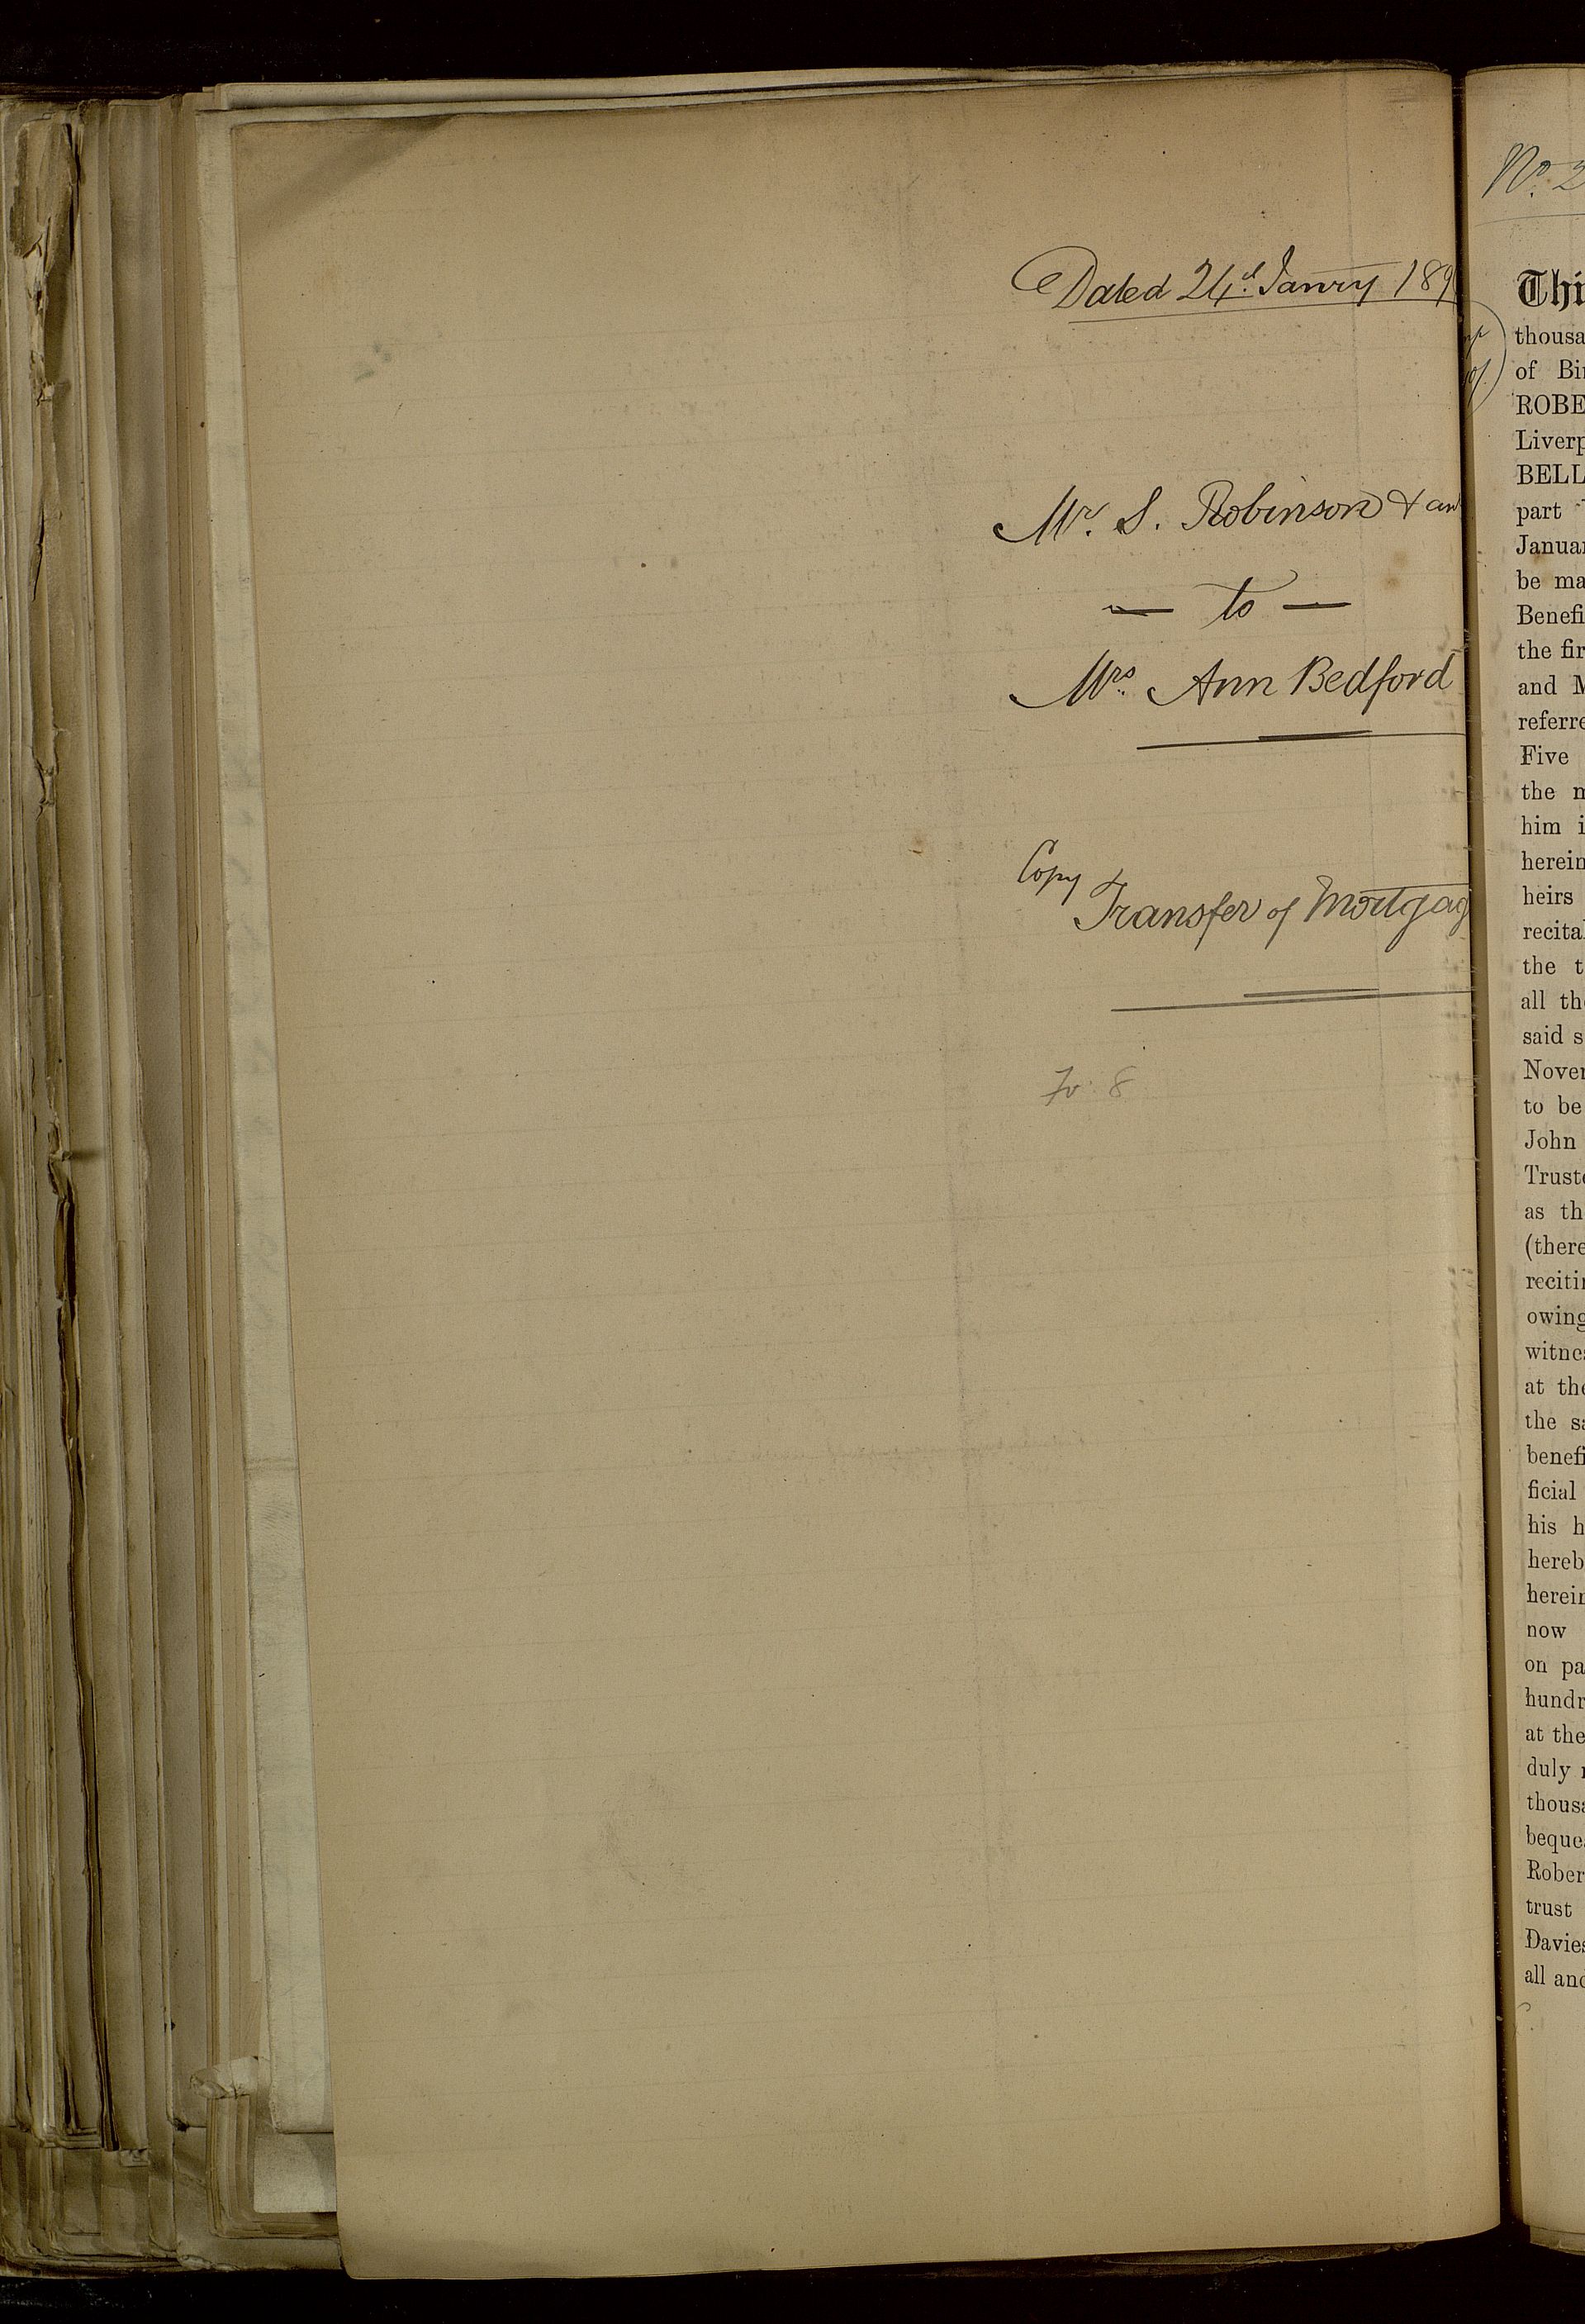 Dated 24th Janry 189
Mr. S. Robinson & an
— to —
Mrs. Ann Bedford
Copy
Transfer of Mortgag
Fo: 8
No. 2
Thi
thousa
of Bi
ROBE
Liverp
BELL
part
Januar
be ma
Benefi
the fir
and M
referre
Five
the m
him i
herein
heirs
recital
the t
all the
said s
Nover
to be
John
Truste
as th
(there
recitin
owing
witnes
at the
the sa
benefi
ficial
his h
hereb
herein
now
on pa
hundr
at the
duly
thousa
beque
Rober
trust
Davies
all and